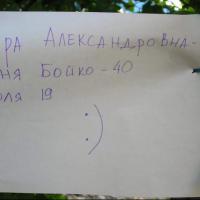 РА АЛЕКСАНДРОВНА-
НЯ БОЙКО-40
ОЛЯ 19
:)